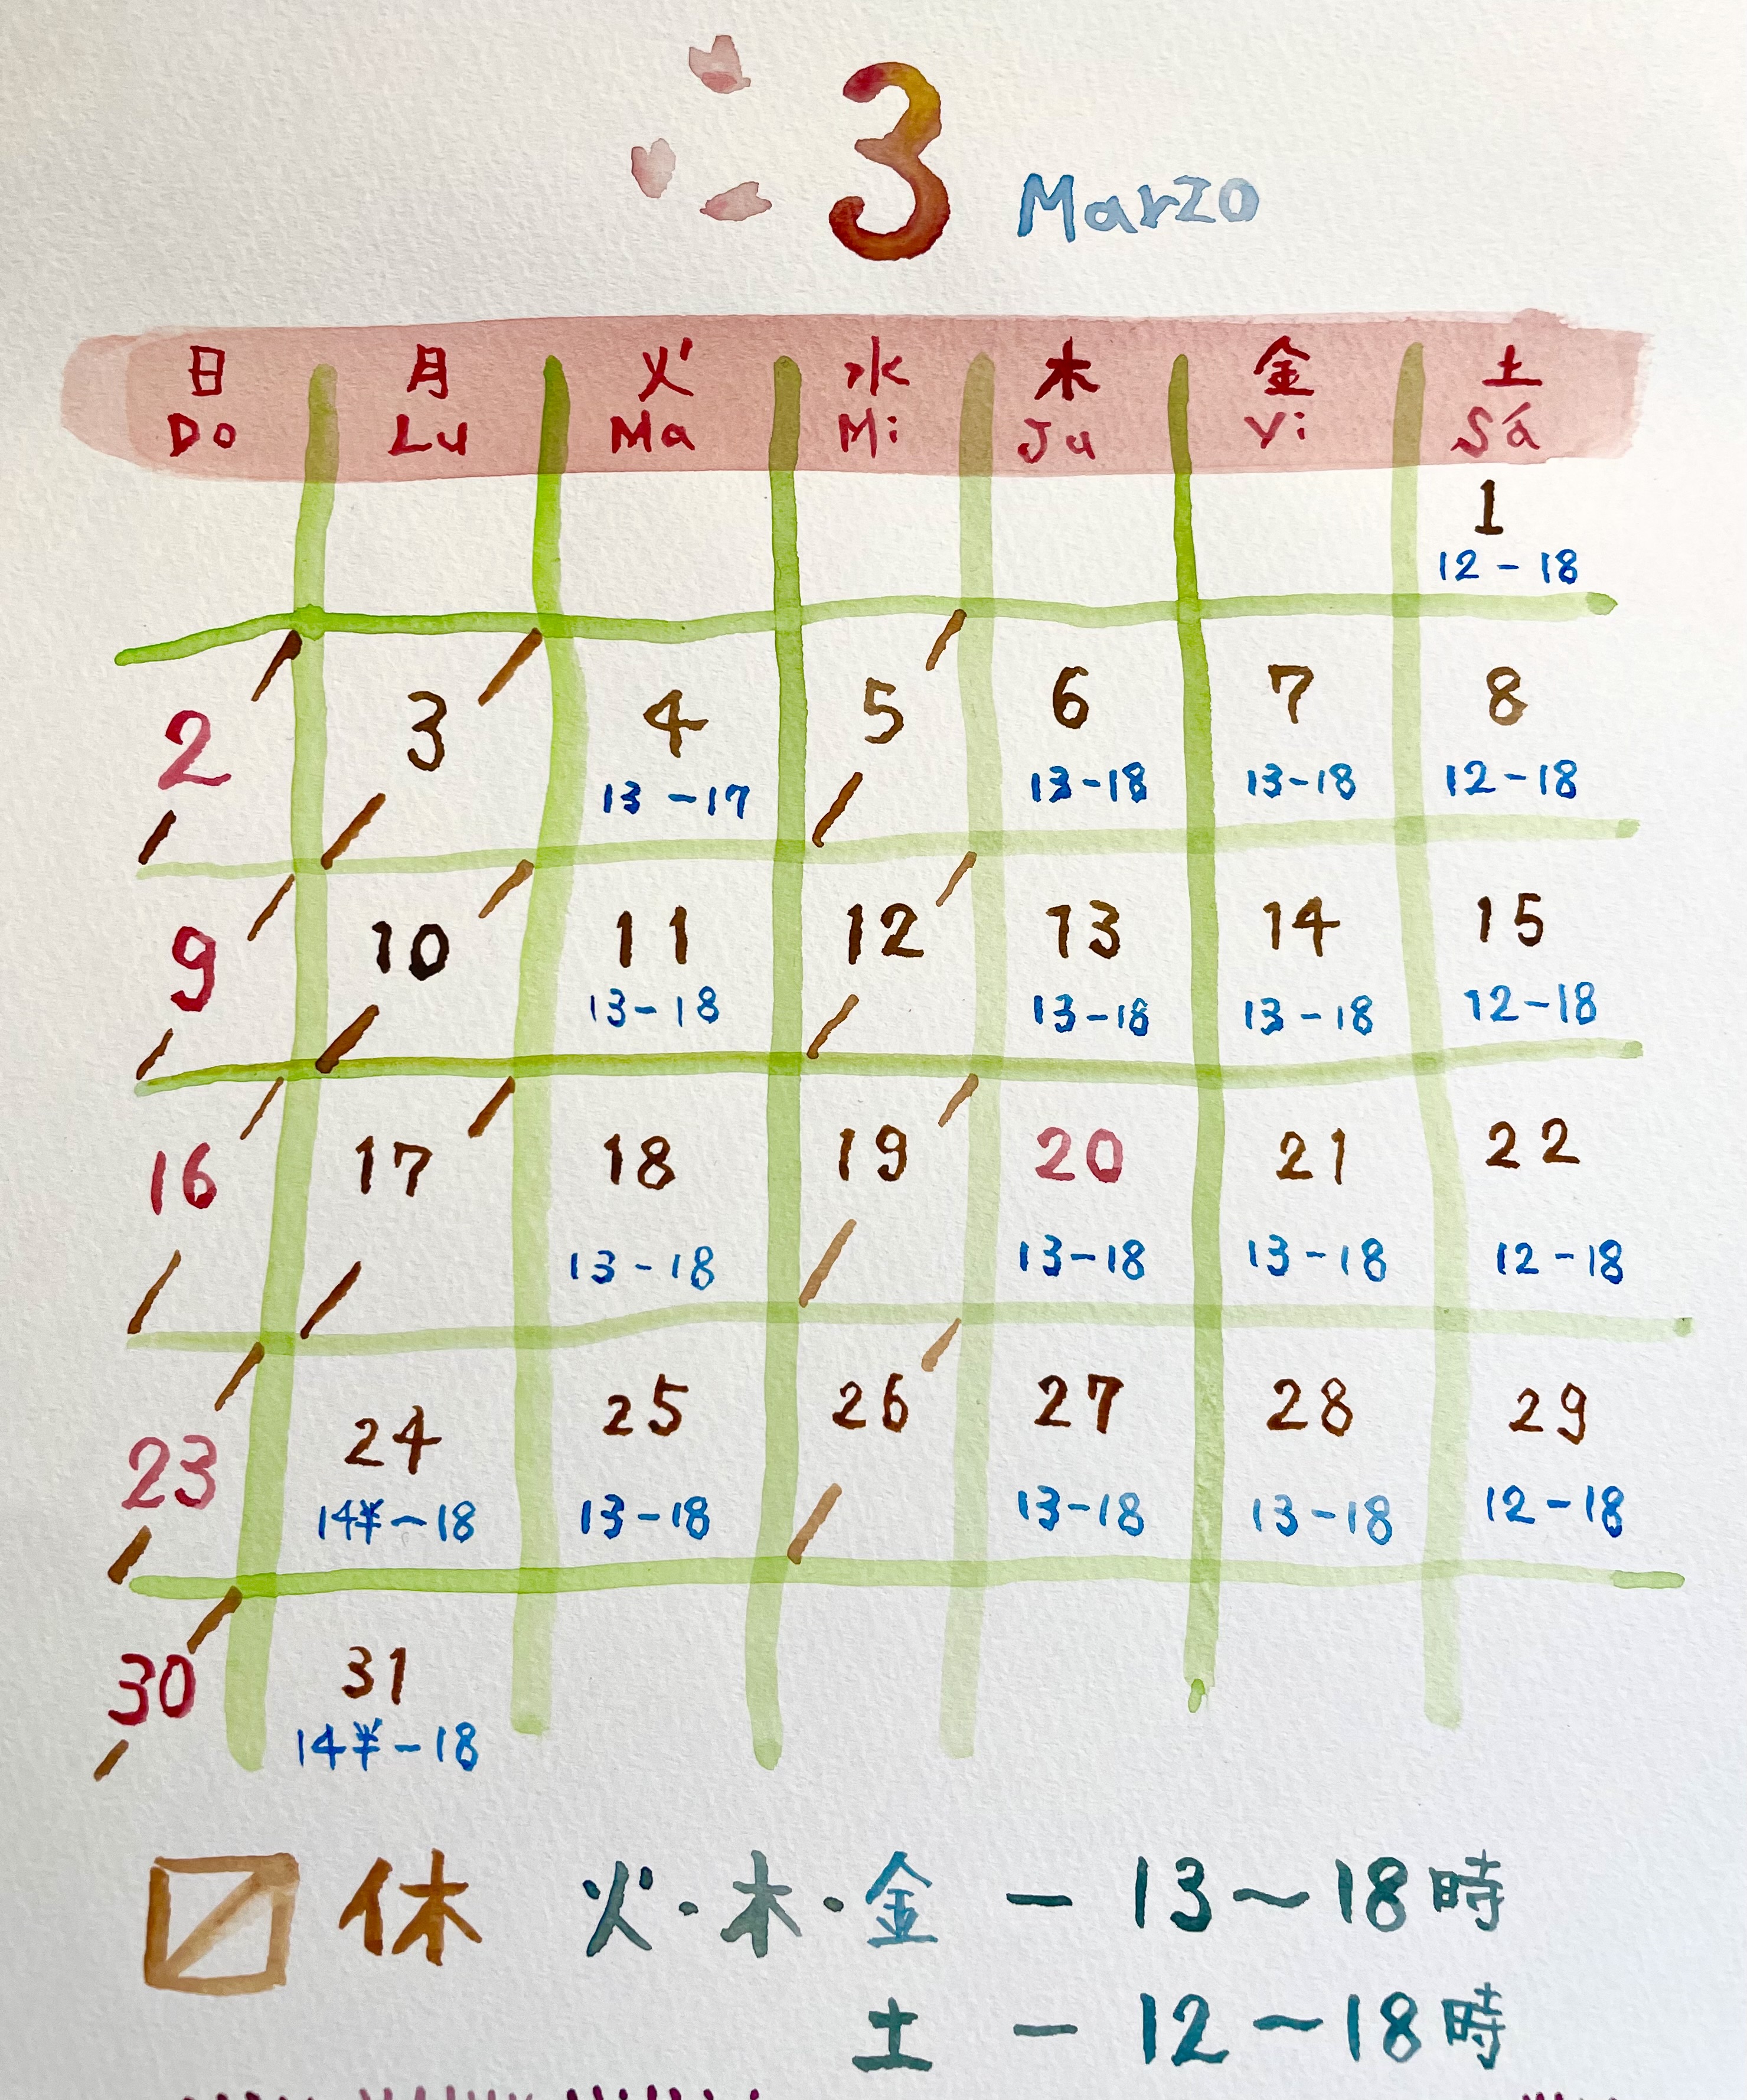 3 Marzo
日 月 火 水 木 金 土
Do Lu Ma Mi Ju Vi Sá
1
12-18
2 3 4 5 6 7 8
13-17 13-18 13-18 12-18
9 10 11 12 13 14 15
13-18 13-18 13-18 12-18
16 17 18 19 20 21 22
13-18 13-18 13-18 12-18
23 24 25 26 27 28 29
14半~18 13-18 13-18 13-18 12-18
30 31
14半-18
休 火・木・金 ー 13~18時
土 ー 12~18時